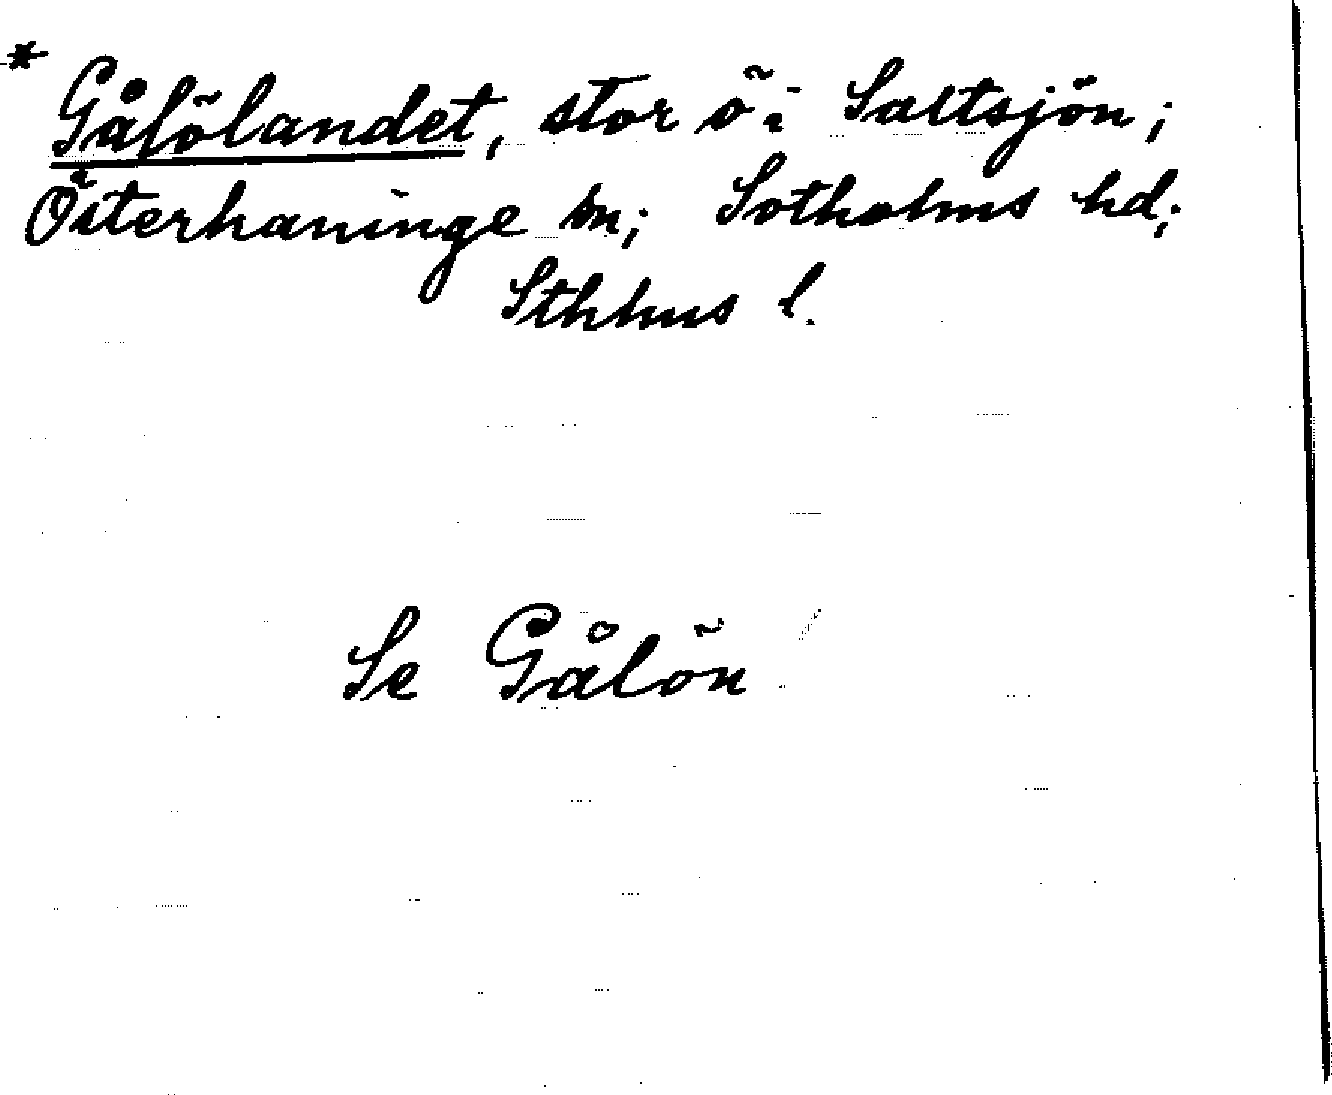 * Gålölandet, stor ö i Saltsjön;
Österhaninge sn; Sotholms hd;
Sthlms l.
Se Gålön